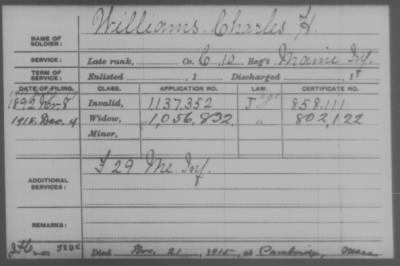 NAME OF SOLDIER: Williams, Charles H.
SERVICE: Late rank, Co. C, 10 Reg't Maine Inf.
TERM OF SERVICE: Enlisted , 1 Discharged , 1
DATE OF FILING. CLASS. APPLICATION NO. LAW. CERTIFICATE NO.
1892 Nov 8 Invalid, 1137,352 858,111
1915. Dec. 4 Widow, 1,056,892 802,122
Minor,
ADDITIONAL SERVICES: F 29 Me Inf
REMARKS:
Died Nov. 21, 1915, at Cambridge, Mass